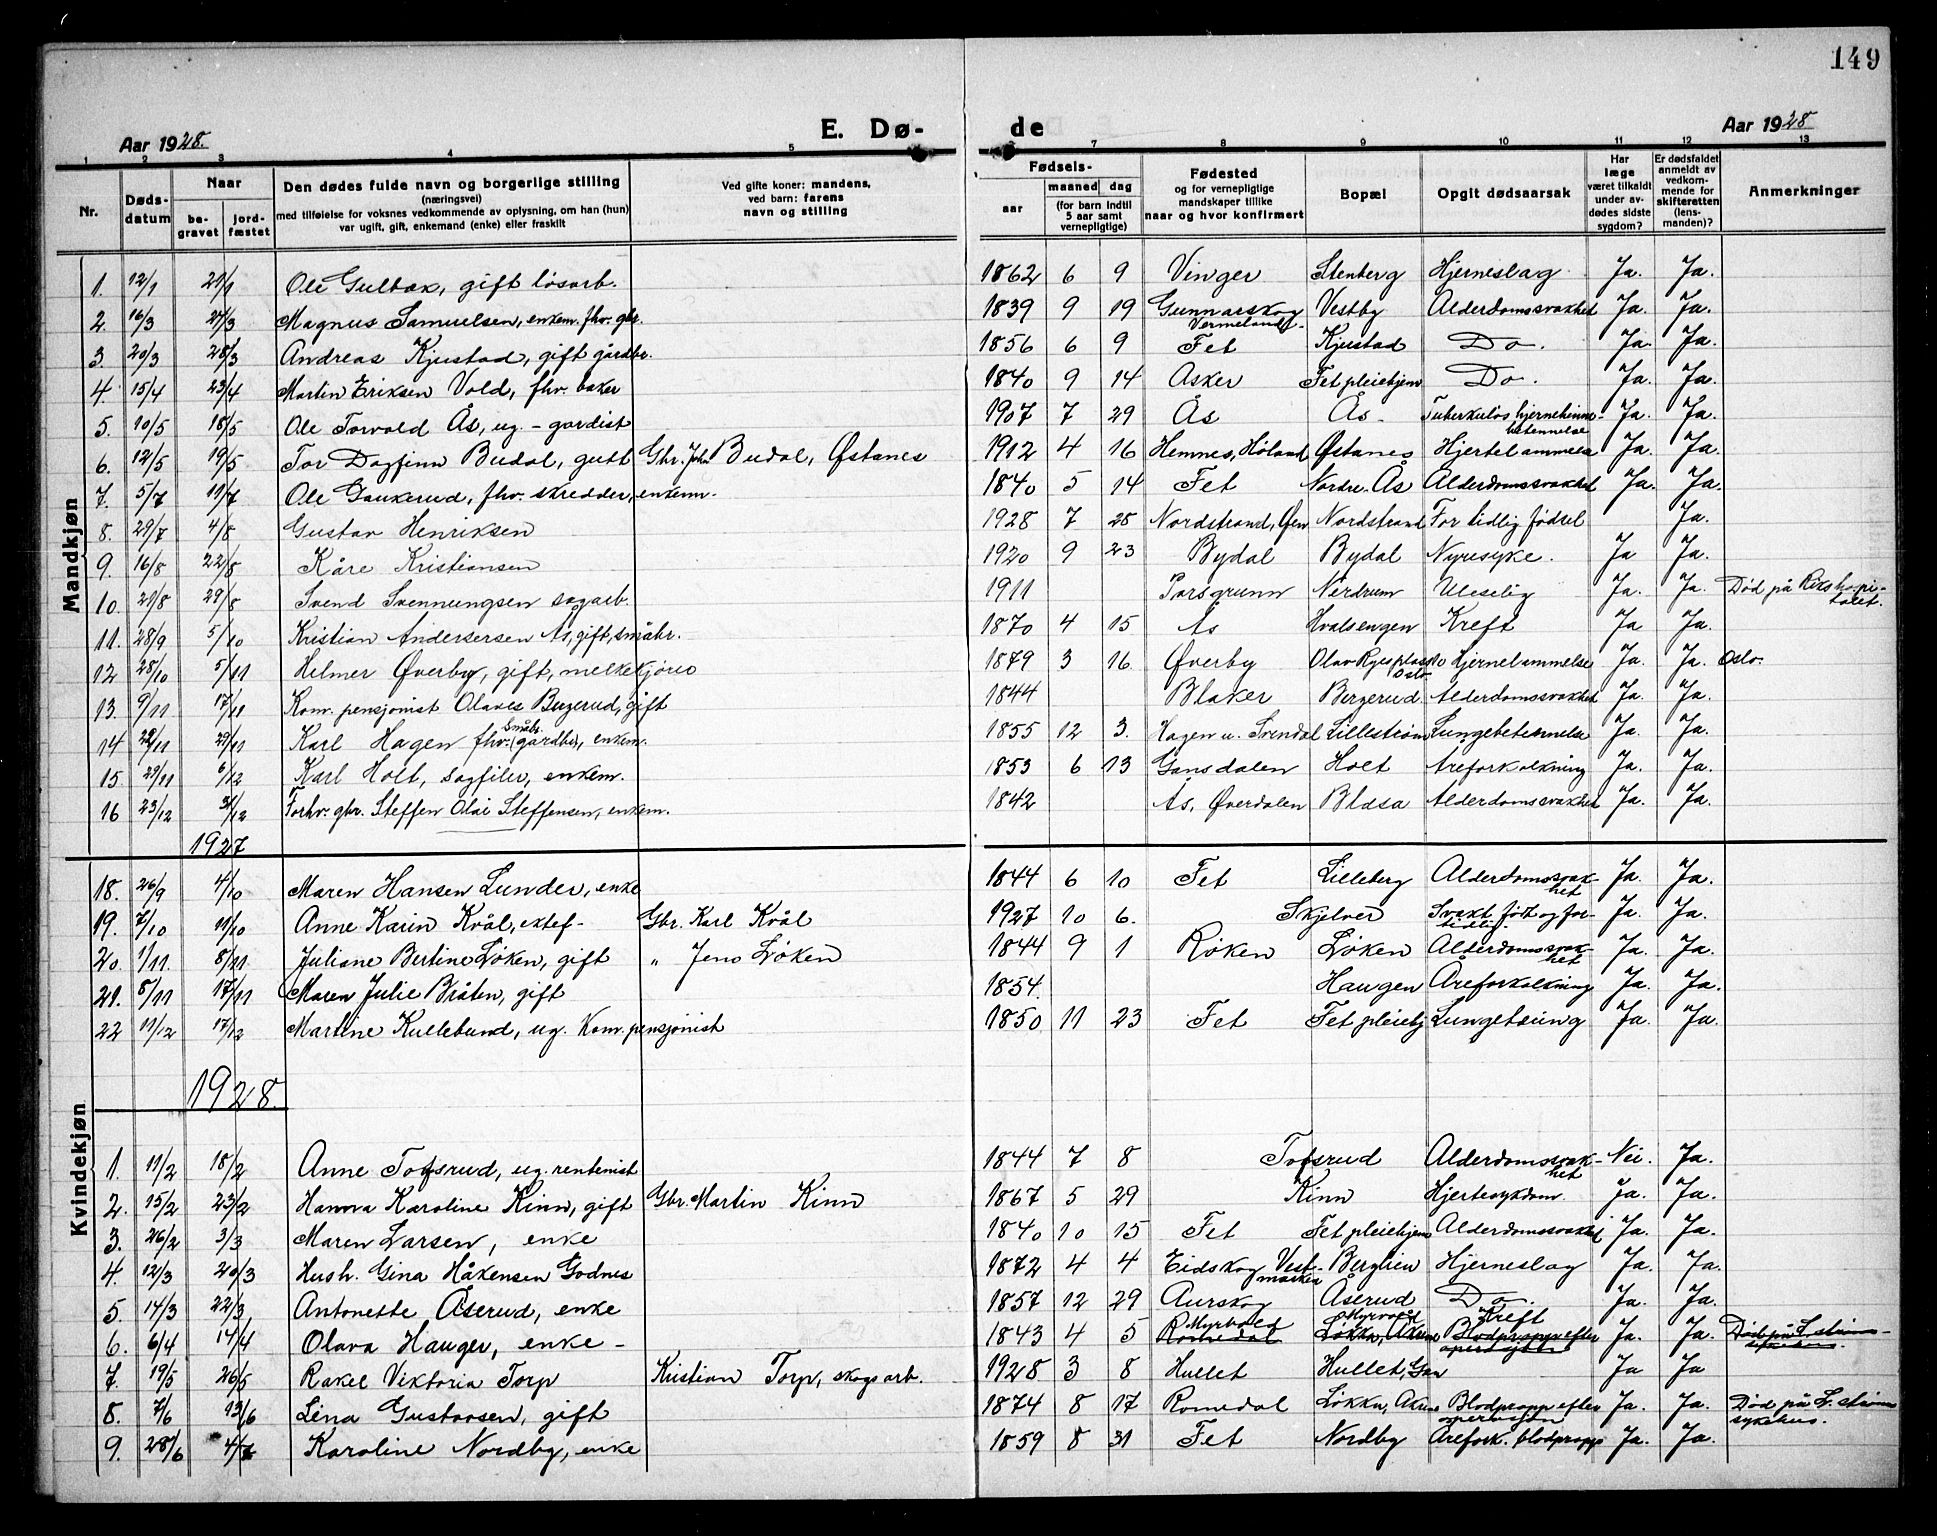 149
E. Dø- de
Aar 1928. Aar 1928
1 2 3 4 5 6 7 8 9 10 11 12 13
Nr.
Døds-
datum
Naar
be-
gravet
jord-
fæstet
Den dødes fulde navn og borgerlige stilling
(næringsvei)
med tilføielse for voksnes vedkommende av oplysning, om han (hun)
var ugift, gift, enkemand (enke) eller fraskilt
Ved gifte koner: mandens,
ved barn: farens
navn og stilling
Fødsels-
aar
maaned dag
(for barn indtil
5 aar samt
vernepligtige)
Fødested
og for vernepligtige
mandskaper tillike
naar og hvor konfirmert
Bopæl
Opgit dødsaarsak
Har
læge
været tilkaldt
under av-
dødes sidste
sygdom?
Er dødsfaldet
anmeldt av
vedkom-
mende for
skifteretten
(lens-
manden)?
Anmerkninger
Mandkjøn
1. 12/1 21/1 Ole Gulbak, gift løsarb. 1862 6 9 Vinger Stenberg Hjerneslag Ja. Ja.
2. 16/3 27/3 Magnus Samuelsen, enkem. fhv. gbr. 1839 9 19 Gunnarskog Vermeland Vestby Alderdomssvakhet Ja. Ja.
3. 20/3 28/3 Andreas Kjustad, gift gårdbr. 1856 6 9 Fet Kjustad Do. Ja. Ja.
4. 15/4 23/4 Martin Eriksen Vold, fhv. baker 1840 9 14 Asker Fet pleiehjem Do. Ja. Ja.
5. 10/5 18/5 Ole Torvald Ås, ug. - gardist 1907 7 29 Ås Ås - Tuberkuløs hjernehinne-betennelse Ja. Ja.
6. 12/5 19/5 Tor Dagfinn Budal, gutt Gbr. Johs Budal, Østanes 1912 4 16 Hemnes, Høland Østanes Hjertelammelse Ja. Ja.
7. 5/7 11/7 Ole Gaukerud, fhv. skredder, enkem. 1840 5 14 Fet Nordre Ås Alderdomssvakhet Ja. Ja.
8. 29/7 4/8 Gustav Henriksen 1928 7 28 Nordstrand, Øien Nordstrand For tidlig fødsel Ja.
9. 16/8 22/8 Kåre Kristiansen 1920 9 23 Bydal Bydal Nyresyke. Ja Ja.
10. 21/8 29/8 Svend Svennungsen sagarb. 1911 Porsgrunn Nerdrum Uleselig Ja. Ja. Død på Rikshospi-talet.
11. 28/9 5/10 Kristian Andersersen Ås, gift, småbr. 1870 4 15 Ås Hvalsengen Kreft Ja Ja.
12 28/10 5/11 Helmer Øverby, gift, melkekjører 1879 3 16. Øverby Olav Ryes plass Oslo Hjernelammelse Ja. Ja. Oslo.
13. 9/11 17/11 Kom. pensjonist Olaves Bergerud, gift 1844 Blaker Bergerud Alderdomssvakhet Ja. Ja.
14 22/11 29/11 Karl Hagen fhv. (gårdbr.) Småbr. enkem. 1855 12 3. Hagen u. Svendal Lillestrøm Lungebetennelse Ja. Ja.
15. 29/11 6/12 Karl Holt, sagfiler, enkem. 1853 6 13 Gansdalen Holt Åreforkalkning Ja. Ja.
16 23/12 31/12 Forhv. gbr. Steffen Olai Steffensen, enkem. 1842 Ås, Øverdalen Blåsa Alderdomssvakhet Ja. Ja.
1927
Kvindekjøn
18. 26/9 4/10 Maren Hansen Lunder, enke 1844 6 10 Fet Lilleberg Alderdomssvak-het Ja. Ja.
19. 7/10 11/10 Anne Karin Kvål, ektef- Gbr. Karl Kvål 1927 10 6. Skjelver Svakt født og for-tidlig. Ja. Ja.
20. 1/11. 8/11 Juliane Bertine Løken, gift „ Jens Løken 1844 9 1 Røken Løken Alderdomssvak-het Ja. Ja.
21. 8/11 17/11 Maren Julie Bråten, gift 1854. Haugen Åreforkalkning Ja. Ja.
22 11/12 17/12 Martine Kullebund, ug. Kom. pensjonist 1850 11 23 Fet Fet pleiehj Lungetæring Ja. Ja.
1928.
1. 11/2 18/2 Anne Tofsrud, ug. rentenist 1844 7 8 Tofsrud Alderdomssvak-het Nei. Ja.
2. 15/2 23/2 Hanna Karoline Kinn, gift Gbr. Martin Kinn 1867 5 29 Kinn Hjertesykdom. Ja. Ja.
3. 26/2 3/3 Maren Larsen, enke 1840 10 15 Fet Fet pleiehjem Alderdomssvakhet Ja. Ja.
4. 12/3 20/3 Hush. Gina Håkensen Godnes 1872 4 4 Eidskog Vest-marken Berglien Hjerneslag Ja. Ja.
5. 14/3 22/3 Antonette Åserud, enke 1857 12 29 Aurskog Åserud Do. Ja. Ja.
6. 6/4 14/4 Olava Hauger, enke - 1843 4 5 Myrvold Romedal Myrvold Løkka, Åkrene Kreft Blodpropp efter operasjon Ja. Ja. Død på L.strøm sykehus.
7. 19/5 26/5 Rakel Viktoria Torp Kristian Torp, skogsarb. 1928 3 8 Hullet Hullet, Gan Ja Ja
8. 7/6 13/6 Lina Gustavsen, gift 1874 8 17 Romedal Løkka, Åkrene Blodpropp efter operasjon Ja. Ja. Død på L.strøm sykehus.
9. 28/6 4/7 Karoline Nordby, enke 1859 8 31 Fet Nordby Årefork. blodpropp Ja. Ja.